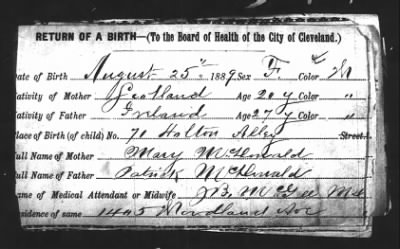 RETURN OF A BIRTH—(To the Board of Health of the City of Cleveland.)
ate of Birth August 25" 1889 Sex F. Color W
ativity of Mother Scotland Age 20 y Color "
ativity of Father Ireland Age 27 y Color "
lace of Birth (of child) No. 70 Halton Alley Street.
ull Name of Mother Mary
ull Name of Father Patrick
ame of Medical Attendant or Midwife J.B. McGee MD
esidence of same 1405 Woodland Ave